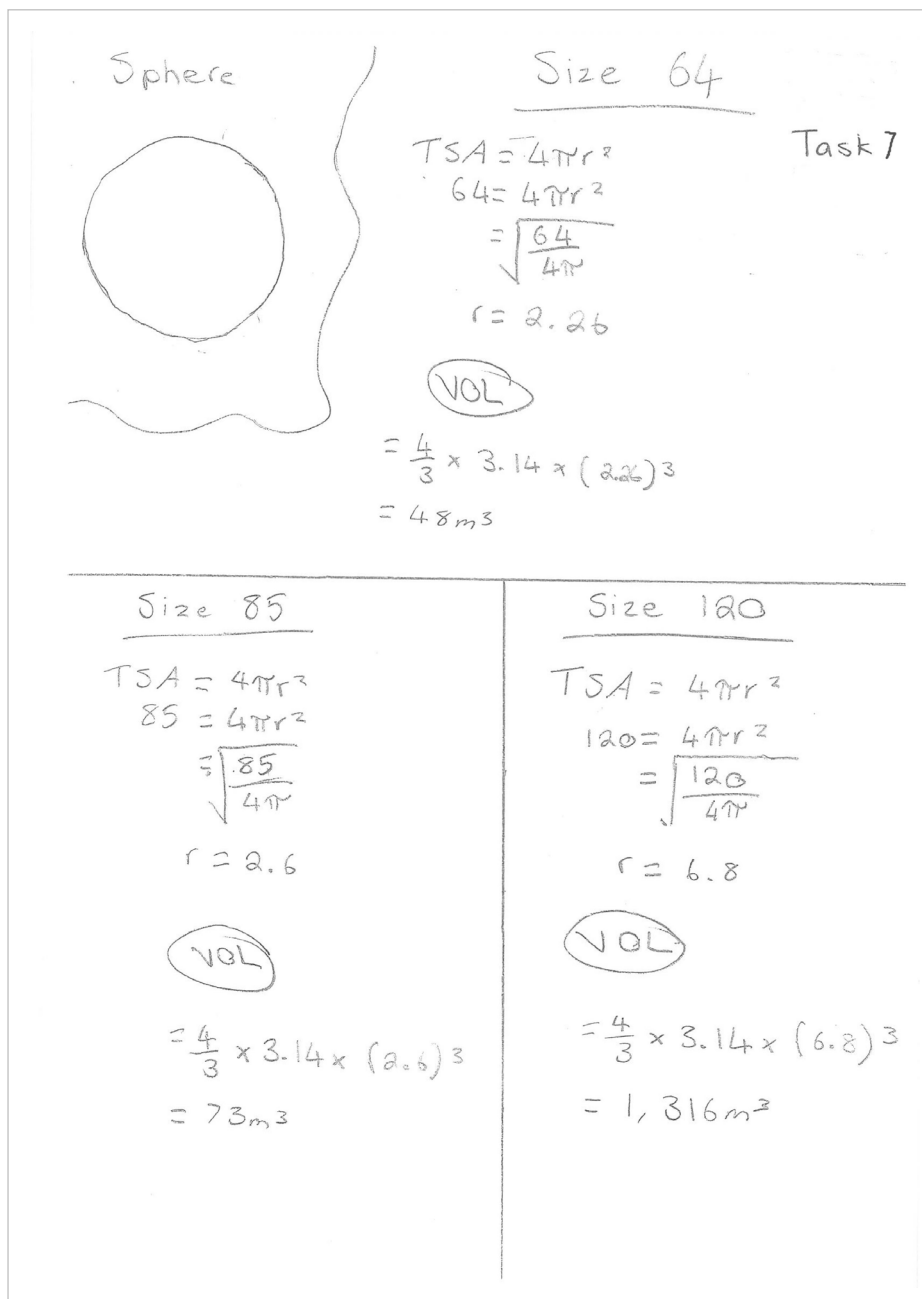 Sphere
Size 64
Task 7
TSA = 4πr²
64 = 4πr²
= √(64/4π)
r = 2.26
VOL
= 4/3 × 3.14 × (2.26)³
= 48m³
Size 85
TSA = 4πr²
85 = 4πr²
= √(85/4π)
r = 2.6
VOL
= 4/3 × 3.14 × (2.6)³
= 73m³
Size 120
TSA = 4πr²
120 = 4πr²
= √(120/4π)
r = 6.8
VOL
= 4/3 × 3.14 × (6.8)³
= 1,316m³